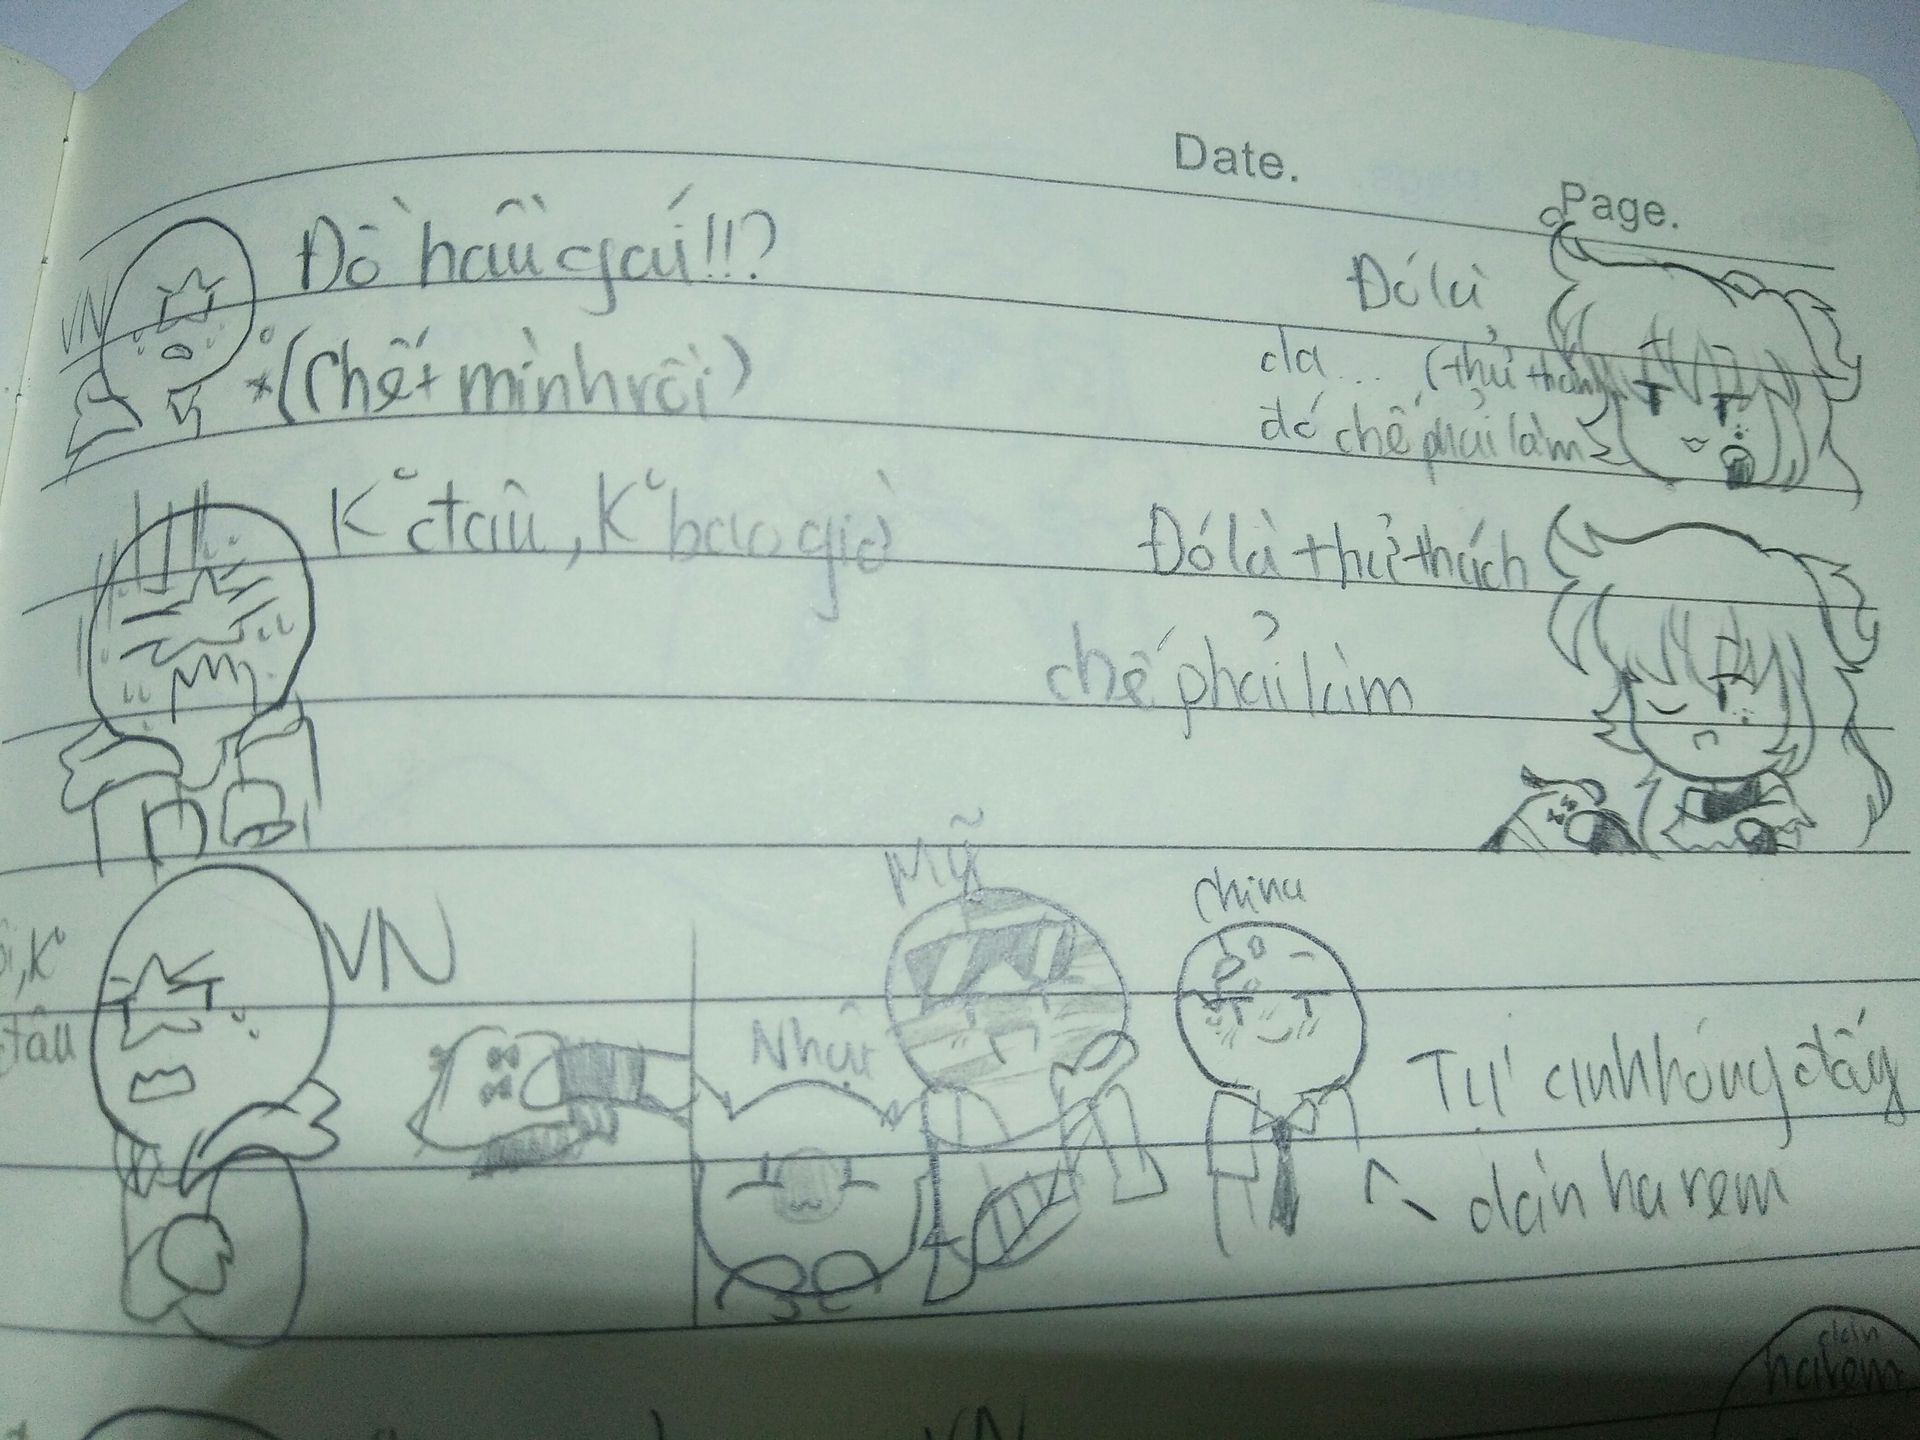 Date.
Page.
VN
Đồ hầu gái!!?
*(Chết mình rồi)
Đó là
dạ... (thử thách
đó chế phải làm)
K° đâu, K° bao giờ
Đó là thử thách
chế phải làm
K°
đâu
VN
Mỹ
china
Nhật
Tự anh hóng đấy
dàn harem
dàn
harem
VN